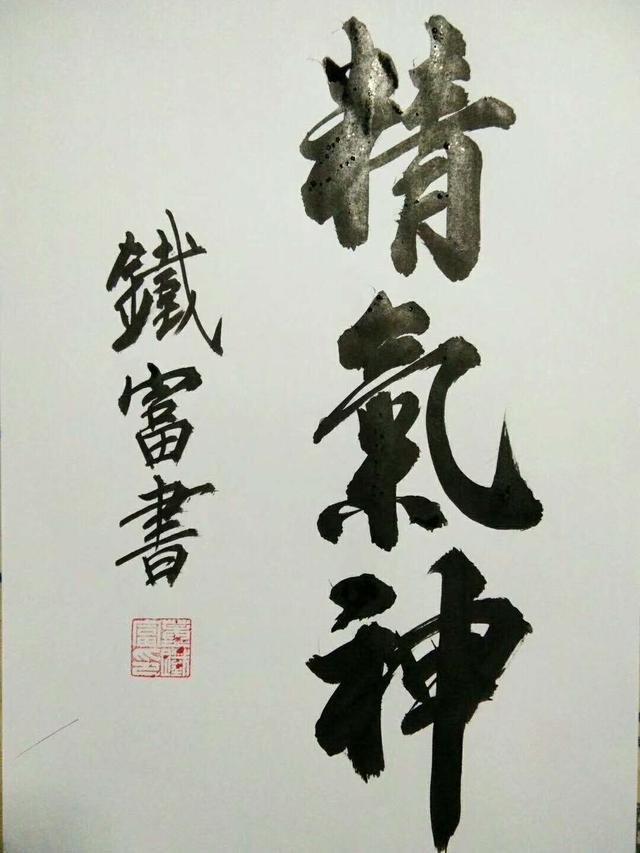 精氣神
鐵富書